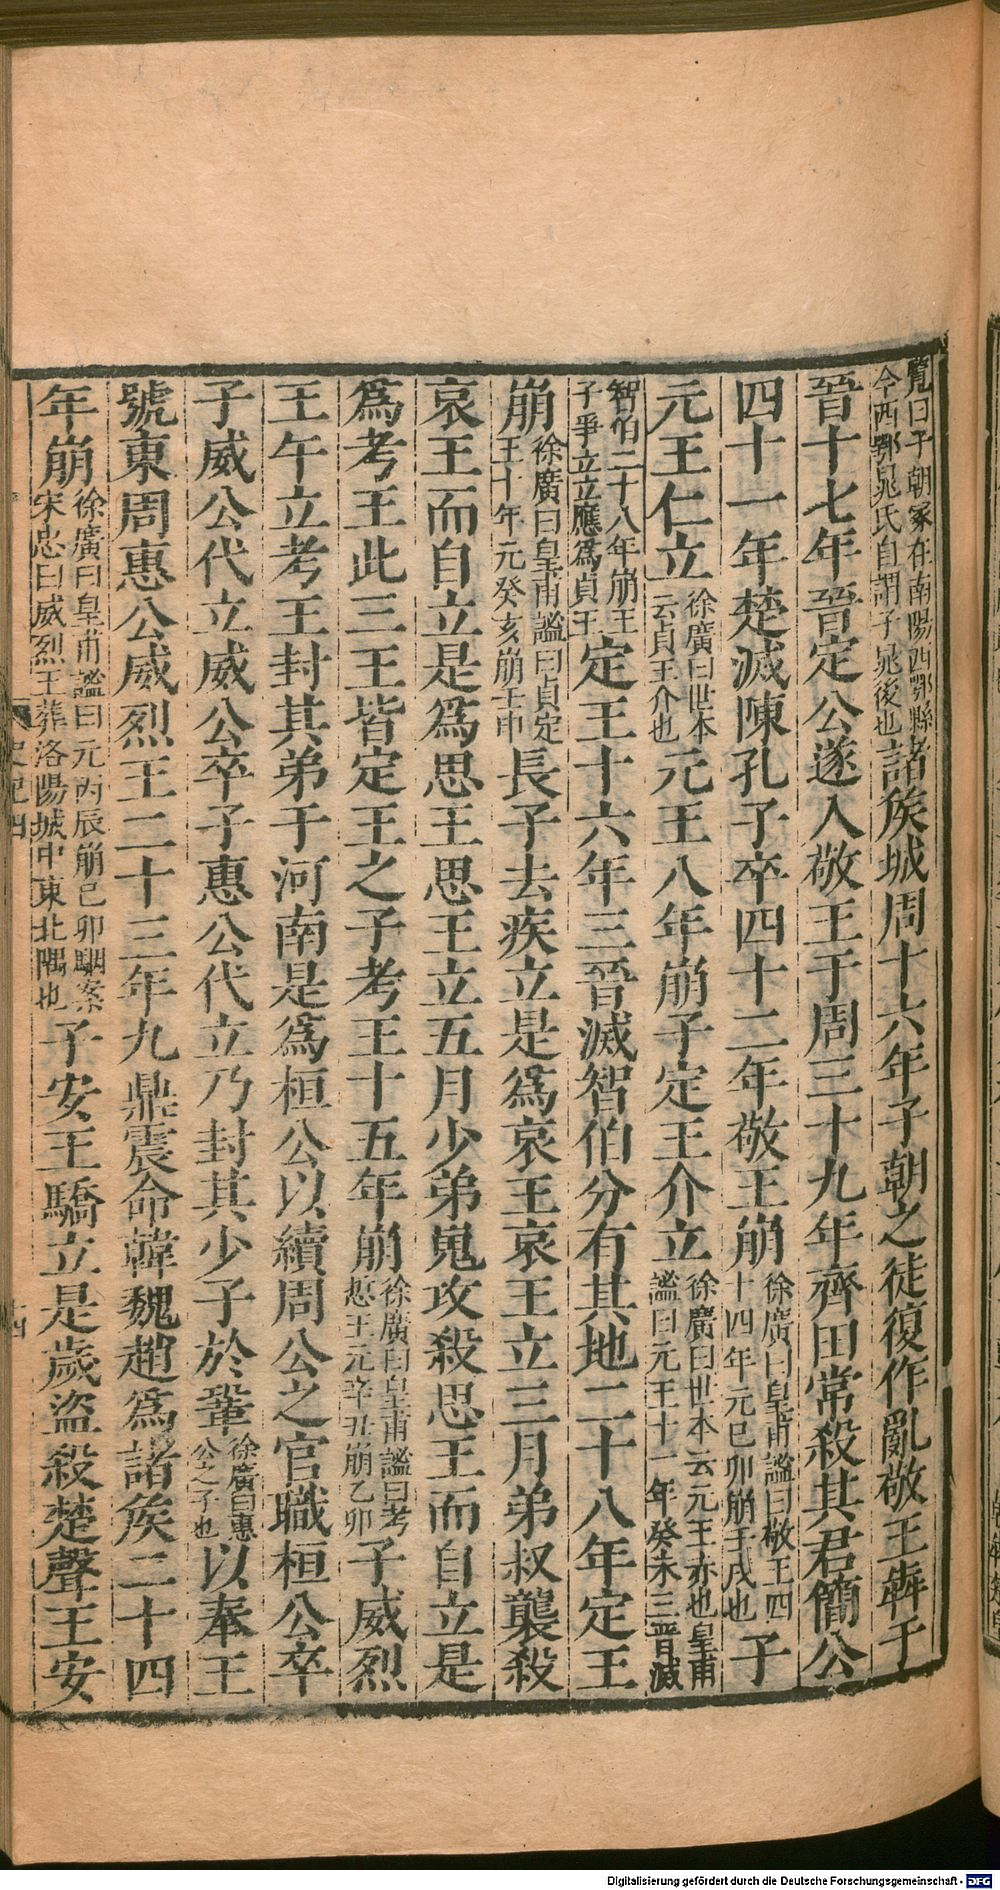 覽曰子朝冢在南陽西鄂縣今西鄂晁氏自謂子晁後也諸矦城周十六年子朝之徒復作亂敬王犇于
晉十七年晉定公遂入敬王于周三十九年齊田常殺其君簡公
四十一年楚滅陳孔子卒四十二年敬王崩徐廣曰皇甫謐曰敬王四十四年元巳卯崩壬戌也子
元王仁立徐廣曰世本云貞王介也元王八年崩子定王介立徐廣曰世本云元王赤也皇甫謐曰元王十一年癸未三晉滅
智伯二十八年崩三子爭立立應爲貞王定王十六年三晉滅智伯分有其地二十八年定王
崩徐廣曰皇甫謐曰貞定王十年元癸亥崩壬申長子去疾立是爲哀王哀王立三月弟叔襲殺
哀王而自立是爲思王思王立五月少弟嵬攻殺思王而自立是
爲考王此三王皆定王之子考王十五年崩徐廣曰皇甫謐曰考悊王元辛丑崩乙卯子威烈
王午立考王封其弟于河南是爲桓公以續周公之官職桓公卒
子威公代立威公卒子惠公代立乃封其少子於鞏徐廣曰惠公之子也以奉王
號東周惠公威烈王二十三年九鼎震命韓魏趙爲諸矦二十四
年崩徐廣曰皇甫謐曰元丙辰崩巳卯駰案宋忠曰威烈王葬洛陽城中東北隅也子安王驕立是歲盜殺楚聲王安
史記四
十四
Digitalisierung gefördert durch die Deutsche Forschungsgemeinschaft - DFG